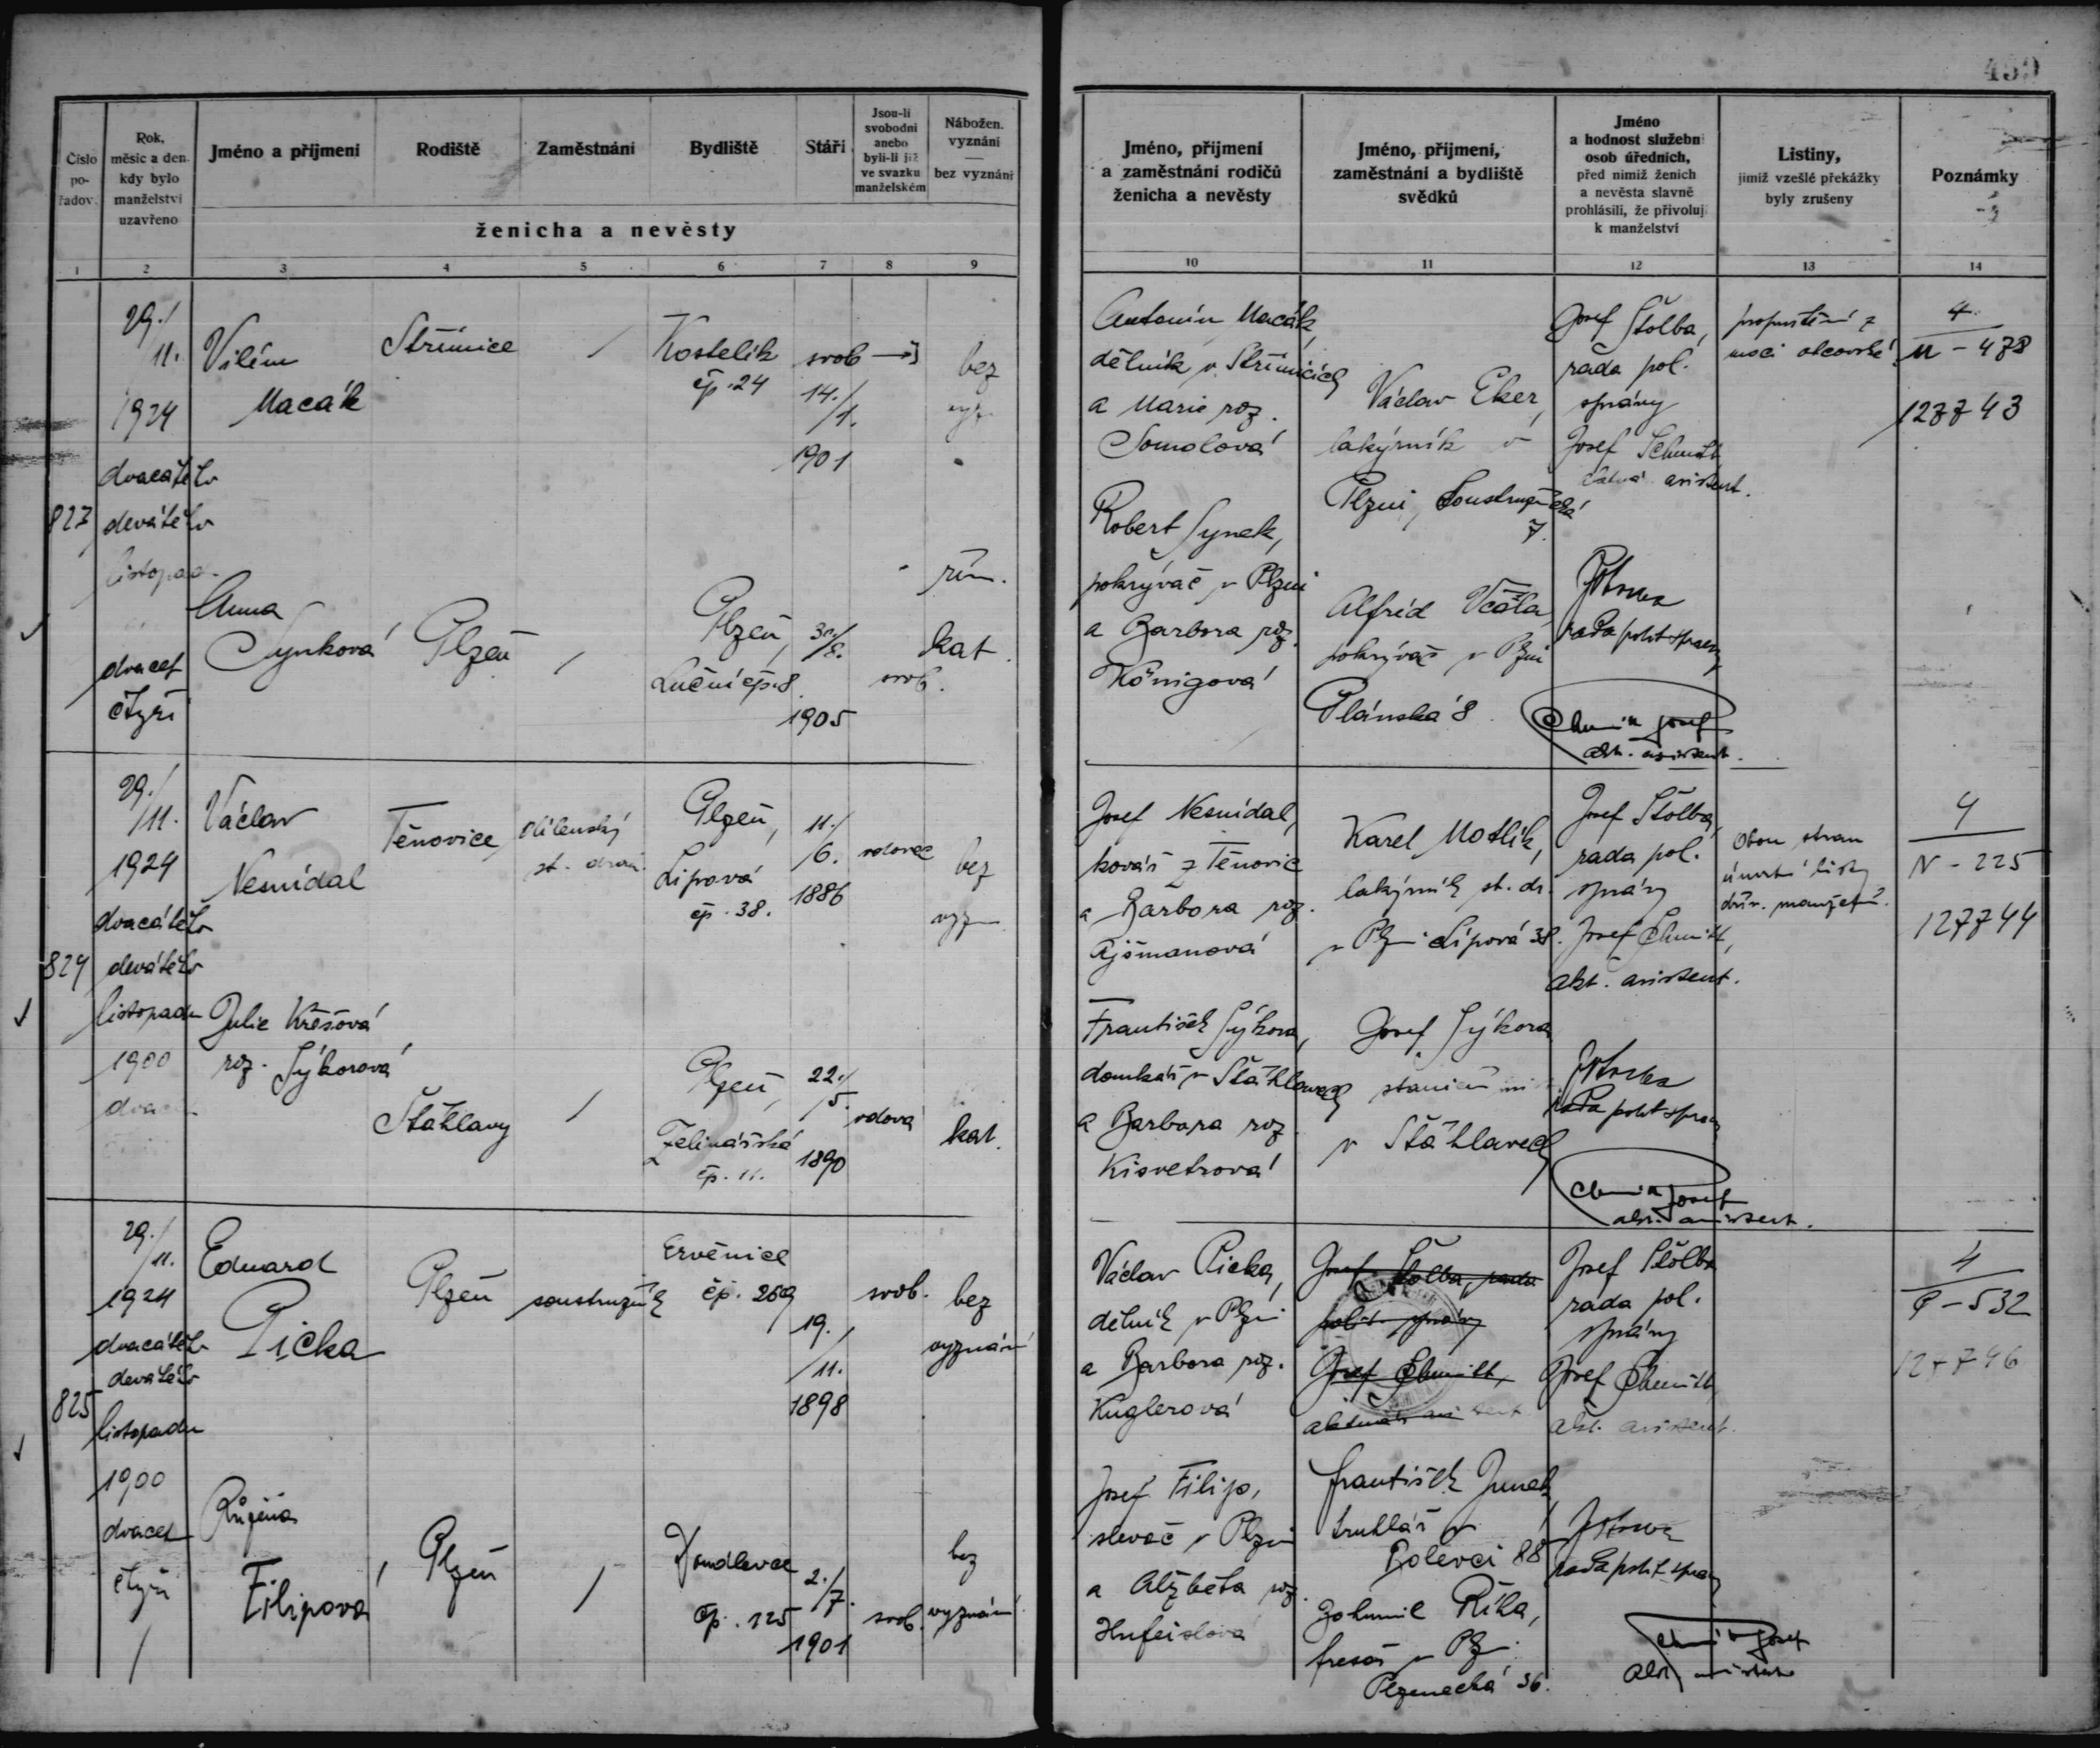 459
Číslo po- řadov.
Rok, měsíc a den kdy bylo manželství uzavřeno
Jméno a příjmení
Rodiště
Zaměstnání
Bydliště
Stáří
Jsou-li svobodni anebo byli-li již ve svazku manželském
Nábožen. vyznání — bez vyznání
ženicha a nevěsty
Jméno, příjmení a zaměstnání rodičů ženicha a nevěsty
Jméno, příjmení, zaměstnání a bydliště svědků
Jméno a hodnost služební osob úředních, před nimiž ženich a nevěsta slavně prohlásili, že přivolují k manželství
Listiny, jimiž vzešlé překážky byly zrušeny
Poznámky
1 2 3 4 5 6 7 8 9 10 11 12 13 14
827
29./11.
1924
dvacátého
devátého
listopad
dvacet
čtyři
Vilém
Macák
Střimice
/
Kostelík
čp. 24
svob
14./1.
1901
bez
vyzn
Anna
Synková
Plzeň
/
Plzeň,
Luční čp. 8.
30./8.
1905
svob.
řím.
kat.
Antonín Macák,
dělník v Střimicích
a Marie roz.
Somolová
Robert Synek,
pokrývač v Plzni
a Barbora roz.
Königová
Václav Eker,
lakýrník v
Plzni, Soustružnická
7.
Alfréd Včala,
pokrývač v Plzni
Plánská 8
Josef Štolba,
rada pol.
správy
Josef Schmitt
asistent.
rada polit správy
Josef
akt. asistent.
propuštění z
moci otcovské
4.
M - 478
127743
824
29./11.
1924
dvacátého
devátého
listopadu
1900
Václav
Nesnídal
Těnovice
dílenský
st. drah.
Plzeň,
Lipová
čp. 38.
11./6.
1886
vdovec
bez
vyzn
Julie Křešová
roz. Sýkorová
Šťáhlavy
/
Plzeň,
Zelinářská
čp. 11.
22./5.
1890
vdova
kat.
Josef Nesnídal,
kovář z Těnovic
a Barbora roz.
Ajšmanová
František Sýkora,
domkář v Šťáhlavech
a Barbora roz.
Kisvetrová
Karel Motlík,
lakýrník st. dr.
v Plzni Lipová 38.
Josef Sýkora
v Šťáhlavech
Josef Štolba,
rada pol.
správy
Josef Chmitt,
akt. asistent.
rada polit správy
Josef
akt. asistent.
Obou stran
úmrtní listy
dřív. manželů.
4
N - 225
127744
825
29./11.
1924
dvacátého
devátého
listopadu
1900
dvacet
čtyři
/
Eduard
Picka
Plzeň
soustružník
Ervěnice
čp. 269
19./11.
1898
svob.
bez
vyznání
Růžena
Filipová
Plzeň
/
čp. 125
2./7.
1901
svob.
bez
vyznání
Václav Picka,
dělník v Plzni
a Barbora roz.
Kuglerová
Josef Filip,
slevač v Plzni
a Alžběta roz.
Hufeislová
Josef Štolba, rada
polit. správy
Josef Chmitt,
František Junek,
truhlář v
Bolevci 88
Bohumil Říha,
fresař v Plz.
Plzenecká 36.
Josef Štolba
rada pol.
správy
Josef Chmitt,
akt. asistent.
rada polit správy
Josef
akt. asistent
4
P - 532
127746